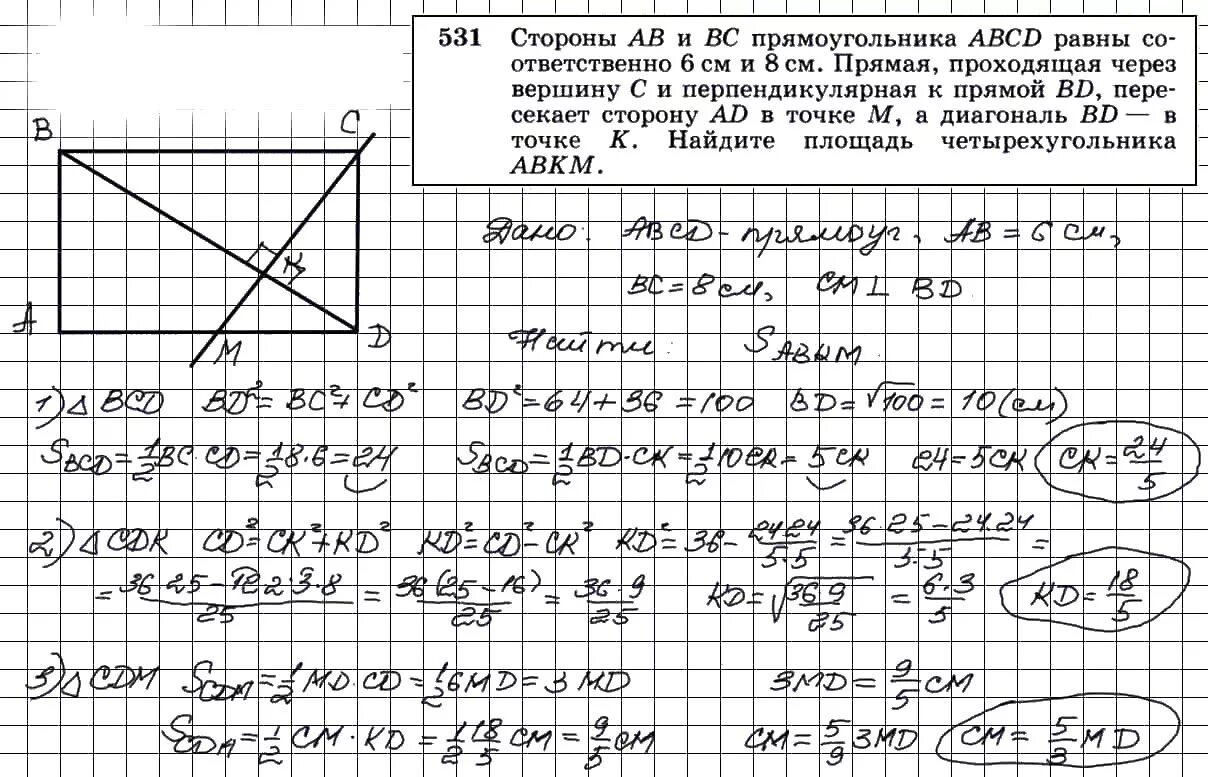 531 Стороны AB и BC прямоугольника ABCD равны со-
ответственно 6 см и 8 см. Прямая, проходящая через
вершину C и перпендикулярная к прямой BD, пере-
секает сторону AD в точке M, а диагональ BD — в
точке K. Найдите площадь четырехугольника
ABKM.
B C
K
A M D
Дано: ABCD - прямоуг, AB = 6 см,
BC = 8 см, CM ⊥ BD
Найти: S_ABKM
1) △ BCD BD² = BC² + CD² BD² = 64 + 36 = 100 BD = √100 = 10 (см)
S_BCD = 1/2 BC · CD = 1/2 · 8 · 6 = 24 S_BCD = 1/2 BD · CK = 1/2 · 10 CK = 5 CK 24 = 5 CK CK = 24/5
2) △ CDK CD² = CK² + KD² KD² = CD² - CK² KD² = 36 - 24·24/5·5 = 36·25 - 24·24/5·5 =
= 36·25 - 12·2·3·8/25 = 36(25 - 16)/25 = 36·9/25 KD = √36·9/25 = 6·3/5 KD = 18/5
3) △ CDM S_CDM = 1/2 MD · CD = 1/2 6 MD = 3 MD 3MD = 9/5 CM
S_CDM = 1/2 CM · KD = 1/2 18/5 CM = 9/5 CM CM = 5/9 3MD CM = 5/3 MD